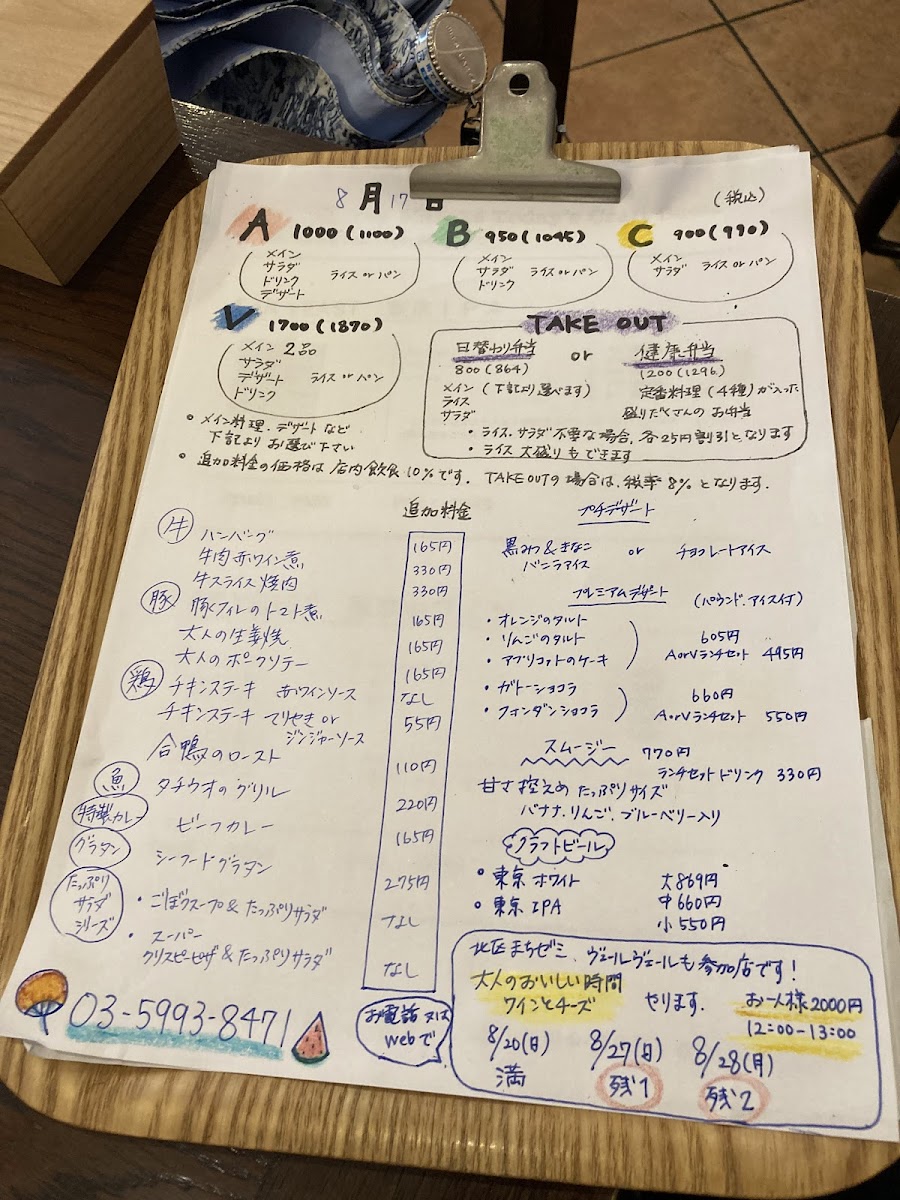 8月17日
(税込)
A 1000(1100)
メイン
サラダ
ドリンク
デザート
ライス or パン
B 950(1045)
メイン
サラダ
ドリンク
ライス or パン
C 900(990)
メイン
サラダ
ライス or パン
V 1700(1870)
メイン 2品
サラダ
デザート
ドリンク
ライス or パン
TAKE OUT
日替わり弁当
800(864)
メイン(下記より選べます)
ライス
サラダ
or
健康弁当
1200(1296.)
定番料理(4種)が入った
盛りだくさんのお弁当
・ライス・サラダ不要な場合、各25円割引となります
・ライス大盛りもできます
○ メイン料理・デザートなど
下記よりお選び下さい
○ 追加料金の価格は店内飲食10%です. TAKE OUTの場合は、税率8%となります.
追加料金
牛
ハンバーグ 165円
牛肉赤ワイン煮 330円
牛スライス焼肉 330円
豚
豚フィレのトマト煮 165円
大人の生姜焼 165円
大人のポークソテー 165円
鶏
チキンステーキ 赤ワインソース なし
チキンステーキ てりやき or ジンジャーソース 55円
合鴨のロースト 110円
魚
タチウオのグリル 220円
特製カレー
ビーフカレー 165円
グラタン
シーフードグラタン 275円
たっぷり
サラダ
シリーズ
・ごぼうスープ&たっぷりサラダ なし
・スーパー
クリスピーピザ&たっぷりサラダ なし
プチデザート
黒みつ&きなこ
バニラアイス
or
チョコレートアイス
プレミアムデザート (パウンド、アイス付)
・オレンジのタルト
・りんごのタルト
・アプリコットのケーキ
605円
AorVランチセット 495円
・ガトーショコラ
・フォンダンショコラ
660円
AorVランチセット 550円
スムージー 770円
ランチセットドリンク 330円
甘さ控えめ たっぷりサイズ
バナナ、りんご、ブルーベリー入り
クラフトビール
○ 東京ホワイト
○ 東京 IPA
大 869円
中 660円
小 550円
北区まちゼミ、ヴェールヴェールも参加店です!
大人のおいしい時間
ワインとチーズ
やります.
お一人様2000円
12:00-13:00
8/20(日)
満
8/27(日)
残1
8/28(月)
残2
03-5993-8471
お電話又は
Webで